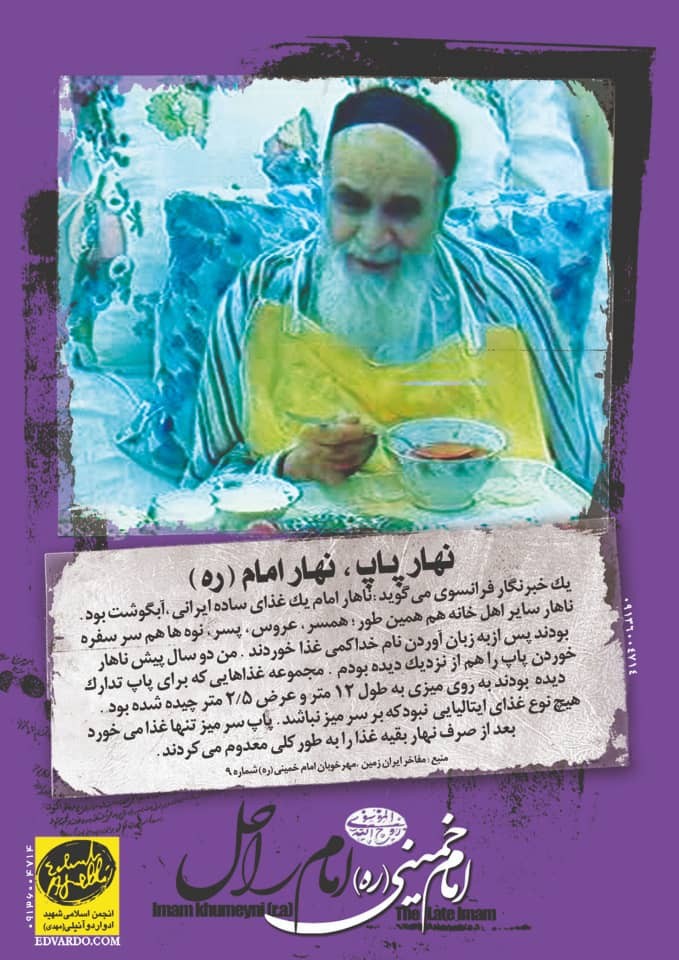 نهار پاپ ، نهار امام ( ره )
یك خبرنگار فرانسوی می‌گوید :ناهار امام یك غذای ساده ایرانی ،آبگوشت بود .
ناهار سایر اهل خانه هم همین طور ؛ همسر ، عروس ، پسر ، نوه ها هم سر سفره
بودند پس ازبه زبان آوردن نام خداكمی غذا خوردند . من دو سال پیش ناهار
خوردن پاپ را هم از نزدیك دیده بودم . مجموعه غذاهایی كه برای پاپ تدارك
دیده بودند به روی میزی به طول ۱۲ متر و عرض ۲/۵ متر چیده شده بود .
هیچ نوع غذای ایتالیایی نبودكه بر سر میز نباشد . پاپ سر میز تنها غذا می خورد
بعد از صرف نهار بقیه غذا را به طور كلی معدوم می كردند .
منبع : مفاخر ایران زمین ،مهر خوبان امام خمینی (ره) شماره ۹
۰۹۱۳۶۰۰۴۷۱۴
امام خمینی (ره) امام راحل
Imam khumeyni (r.a)
The Late Imam
۰۹۱۳۶۰۰۴۷۱۴
انجمن اسلامی شهید
ادواردو آنیلی (مهدی)
EDVARDO.COM